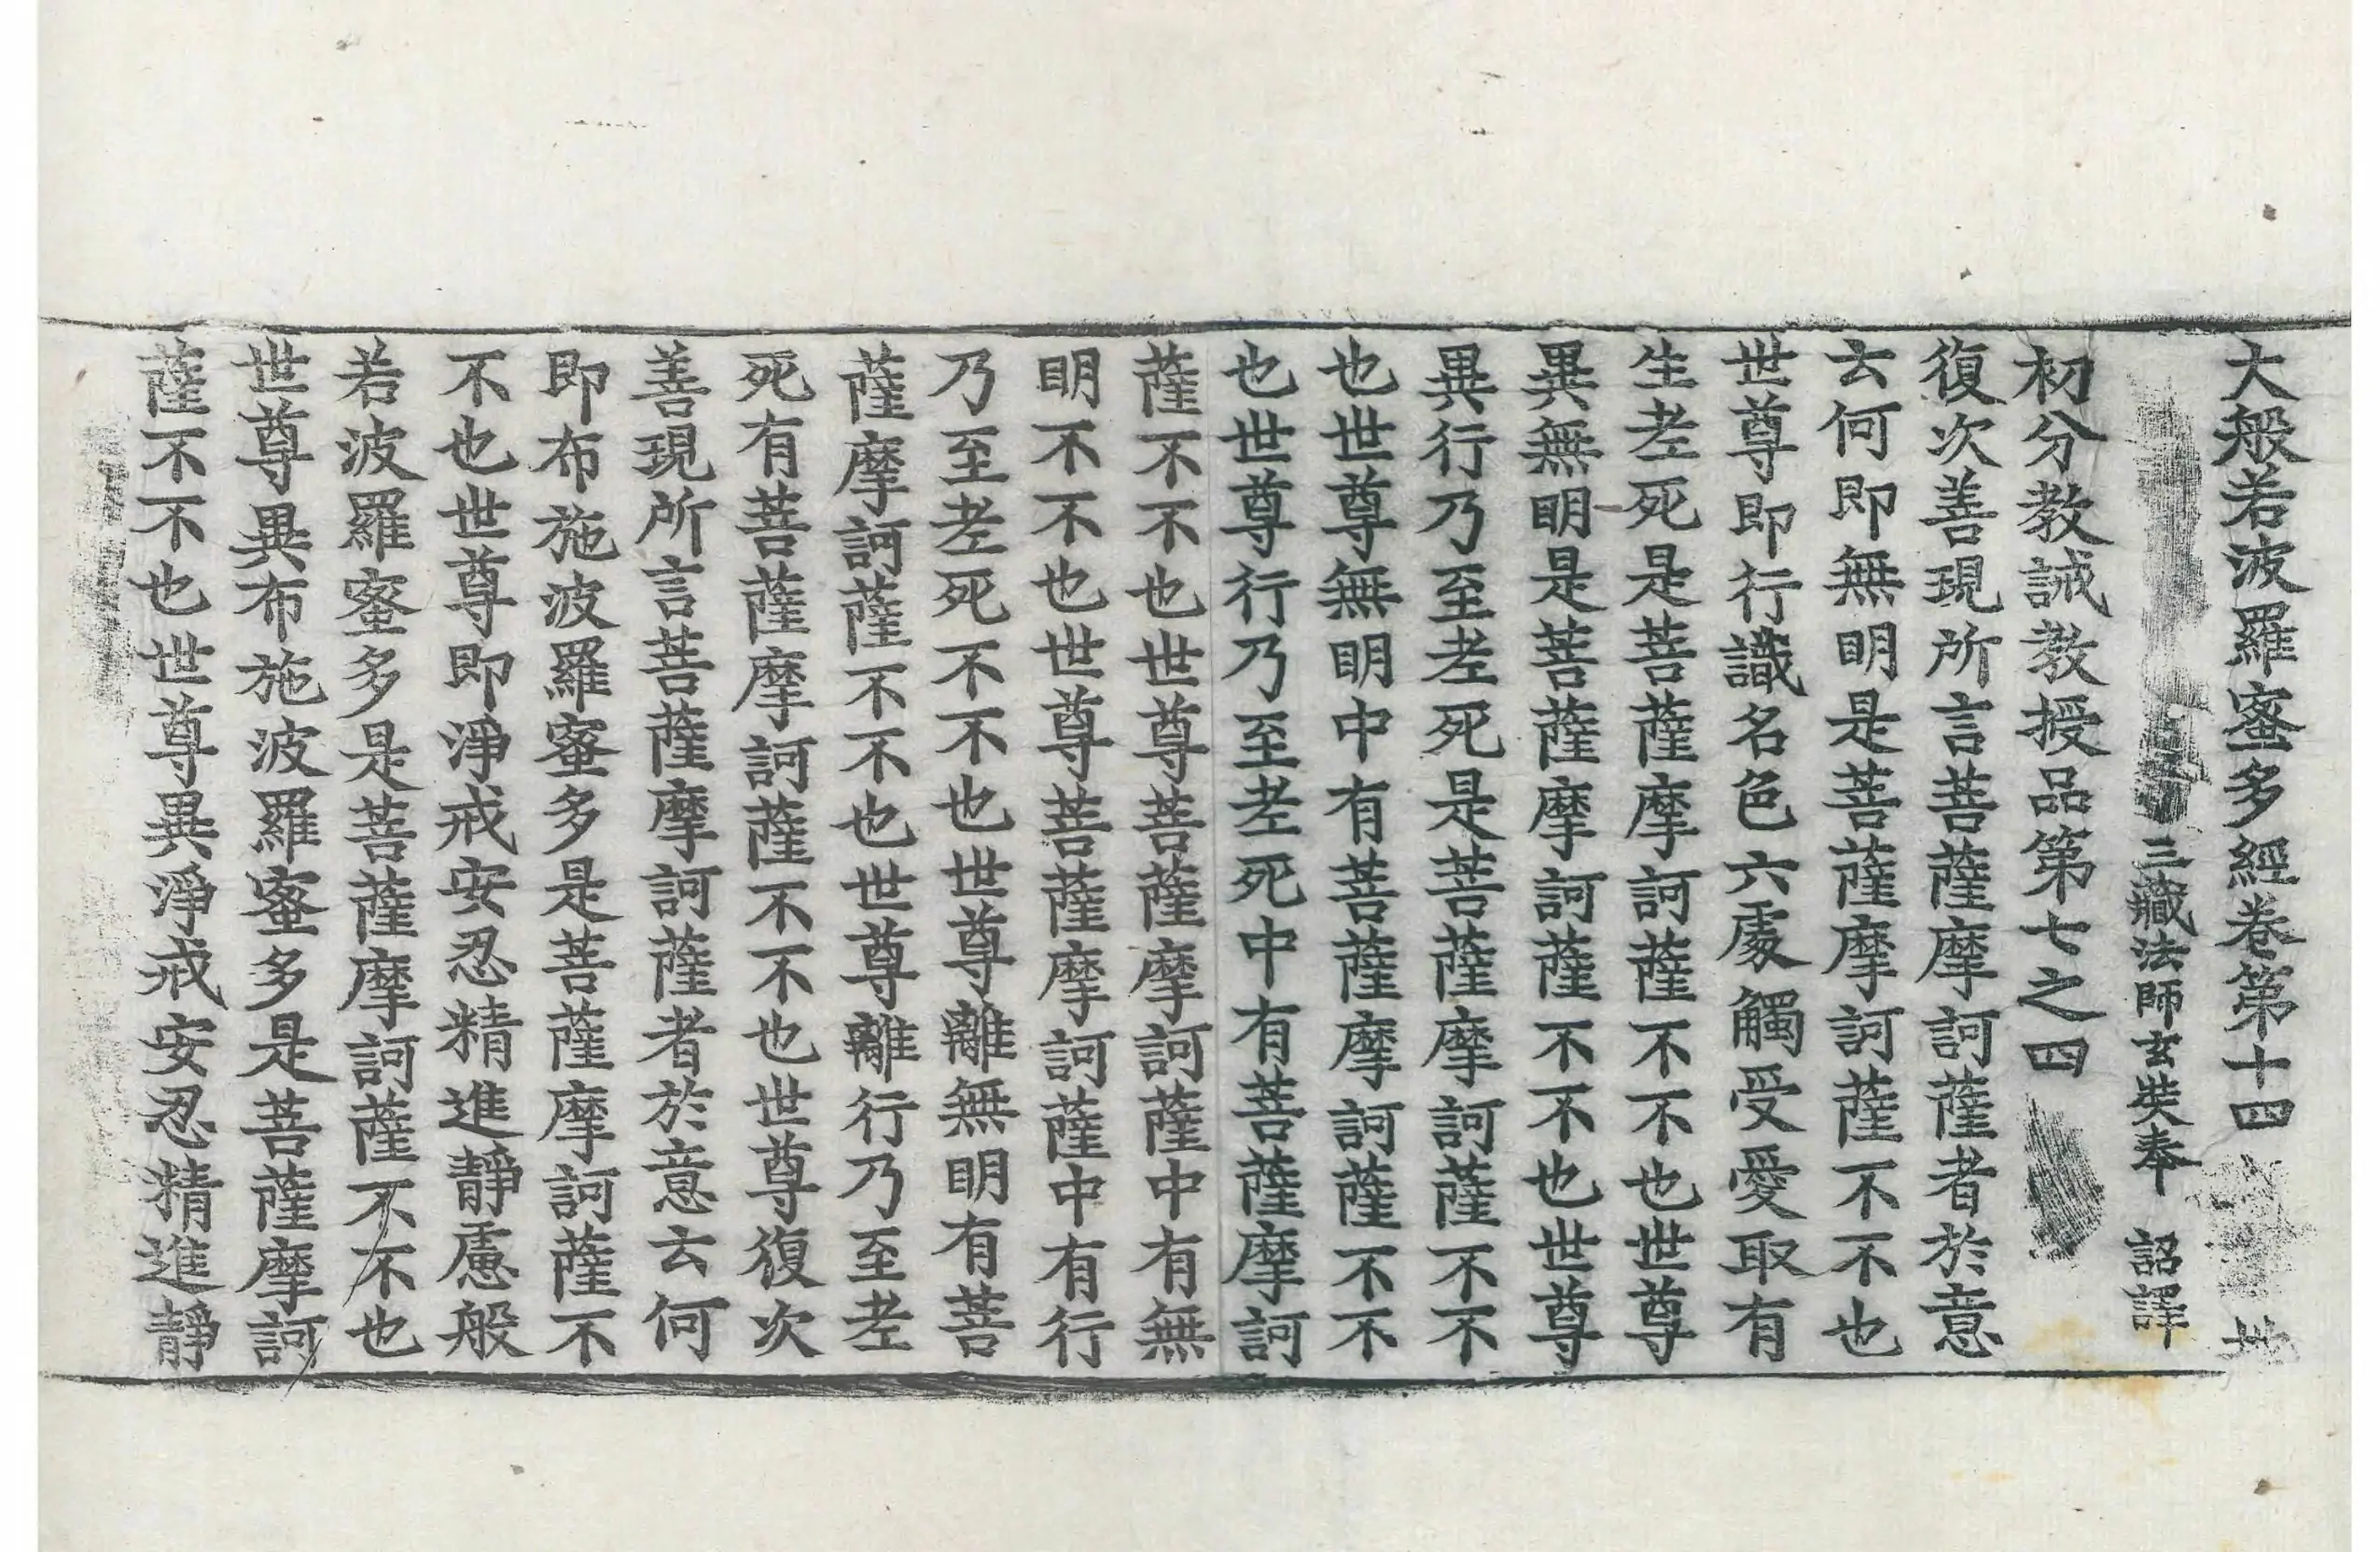 大般若波羅蜜多經卷第十四
三藏法師玄奘奉 詔譯
初分教誡教授品第七之四
復次善現所言菩薩摩訶薩者於意
云何即無明是菩薩摩訶薩不不也
世尊即行識名色六處觸受愛取有
生老死是菩薩摩訶薩不不也世尊
異無明是菩薩摩訶薩不不也世尊
異行乃至老死是菩薩摩訶薩不不
也世尊無明中有菩薩摩訶薩不不
也世尊行乃至老死中有菩薩摩訶
薩不不也世尊菩薩摩訶薩中有無
明不不也世尊菩薩摩訶薩中有行
乃至老死不不也世尊離無明有菩
薩摩訶薩不不也世尊離行乃至老
死有菩薩摩訶薩不不也世尊復次
善現所言菩薩摩訶薩者於意云何
即布施波羅蜜多是菩薩摩訶薩不
不也世尊即淨戒安忍精進靜慮般
若波羅蜜多是菩薩摩訶薩不不也
世尊異布施波羅蜜多是菩薩摩訶
薩不不也世尊異淨戒安忍精進靜